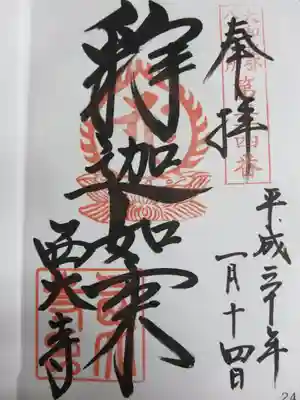 奉拝
平成三十年
一月十四日
釋迦如来
西大寺
24